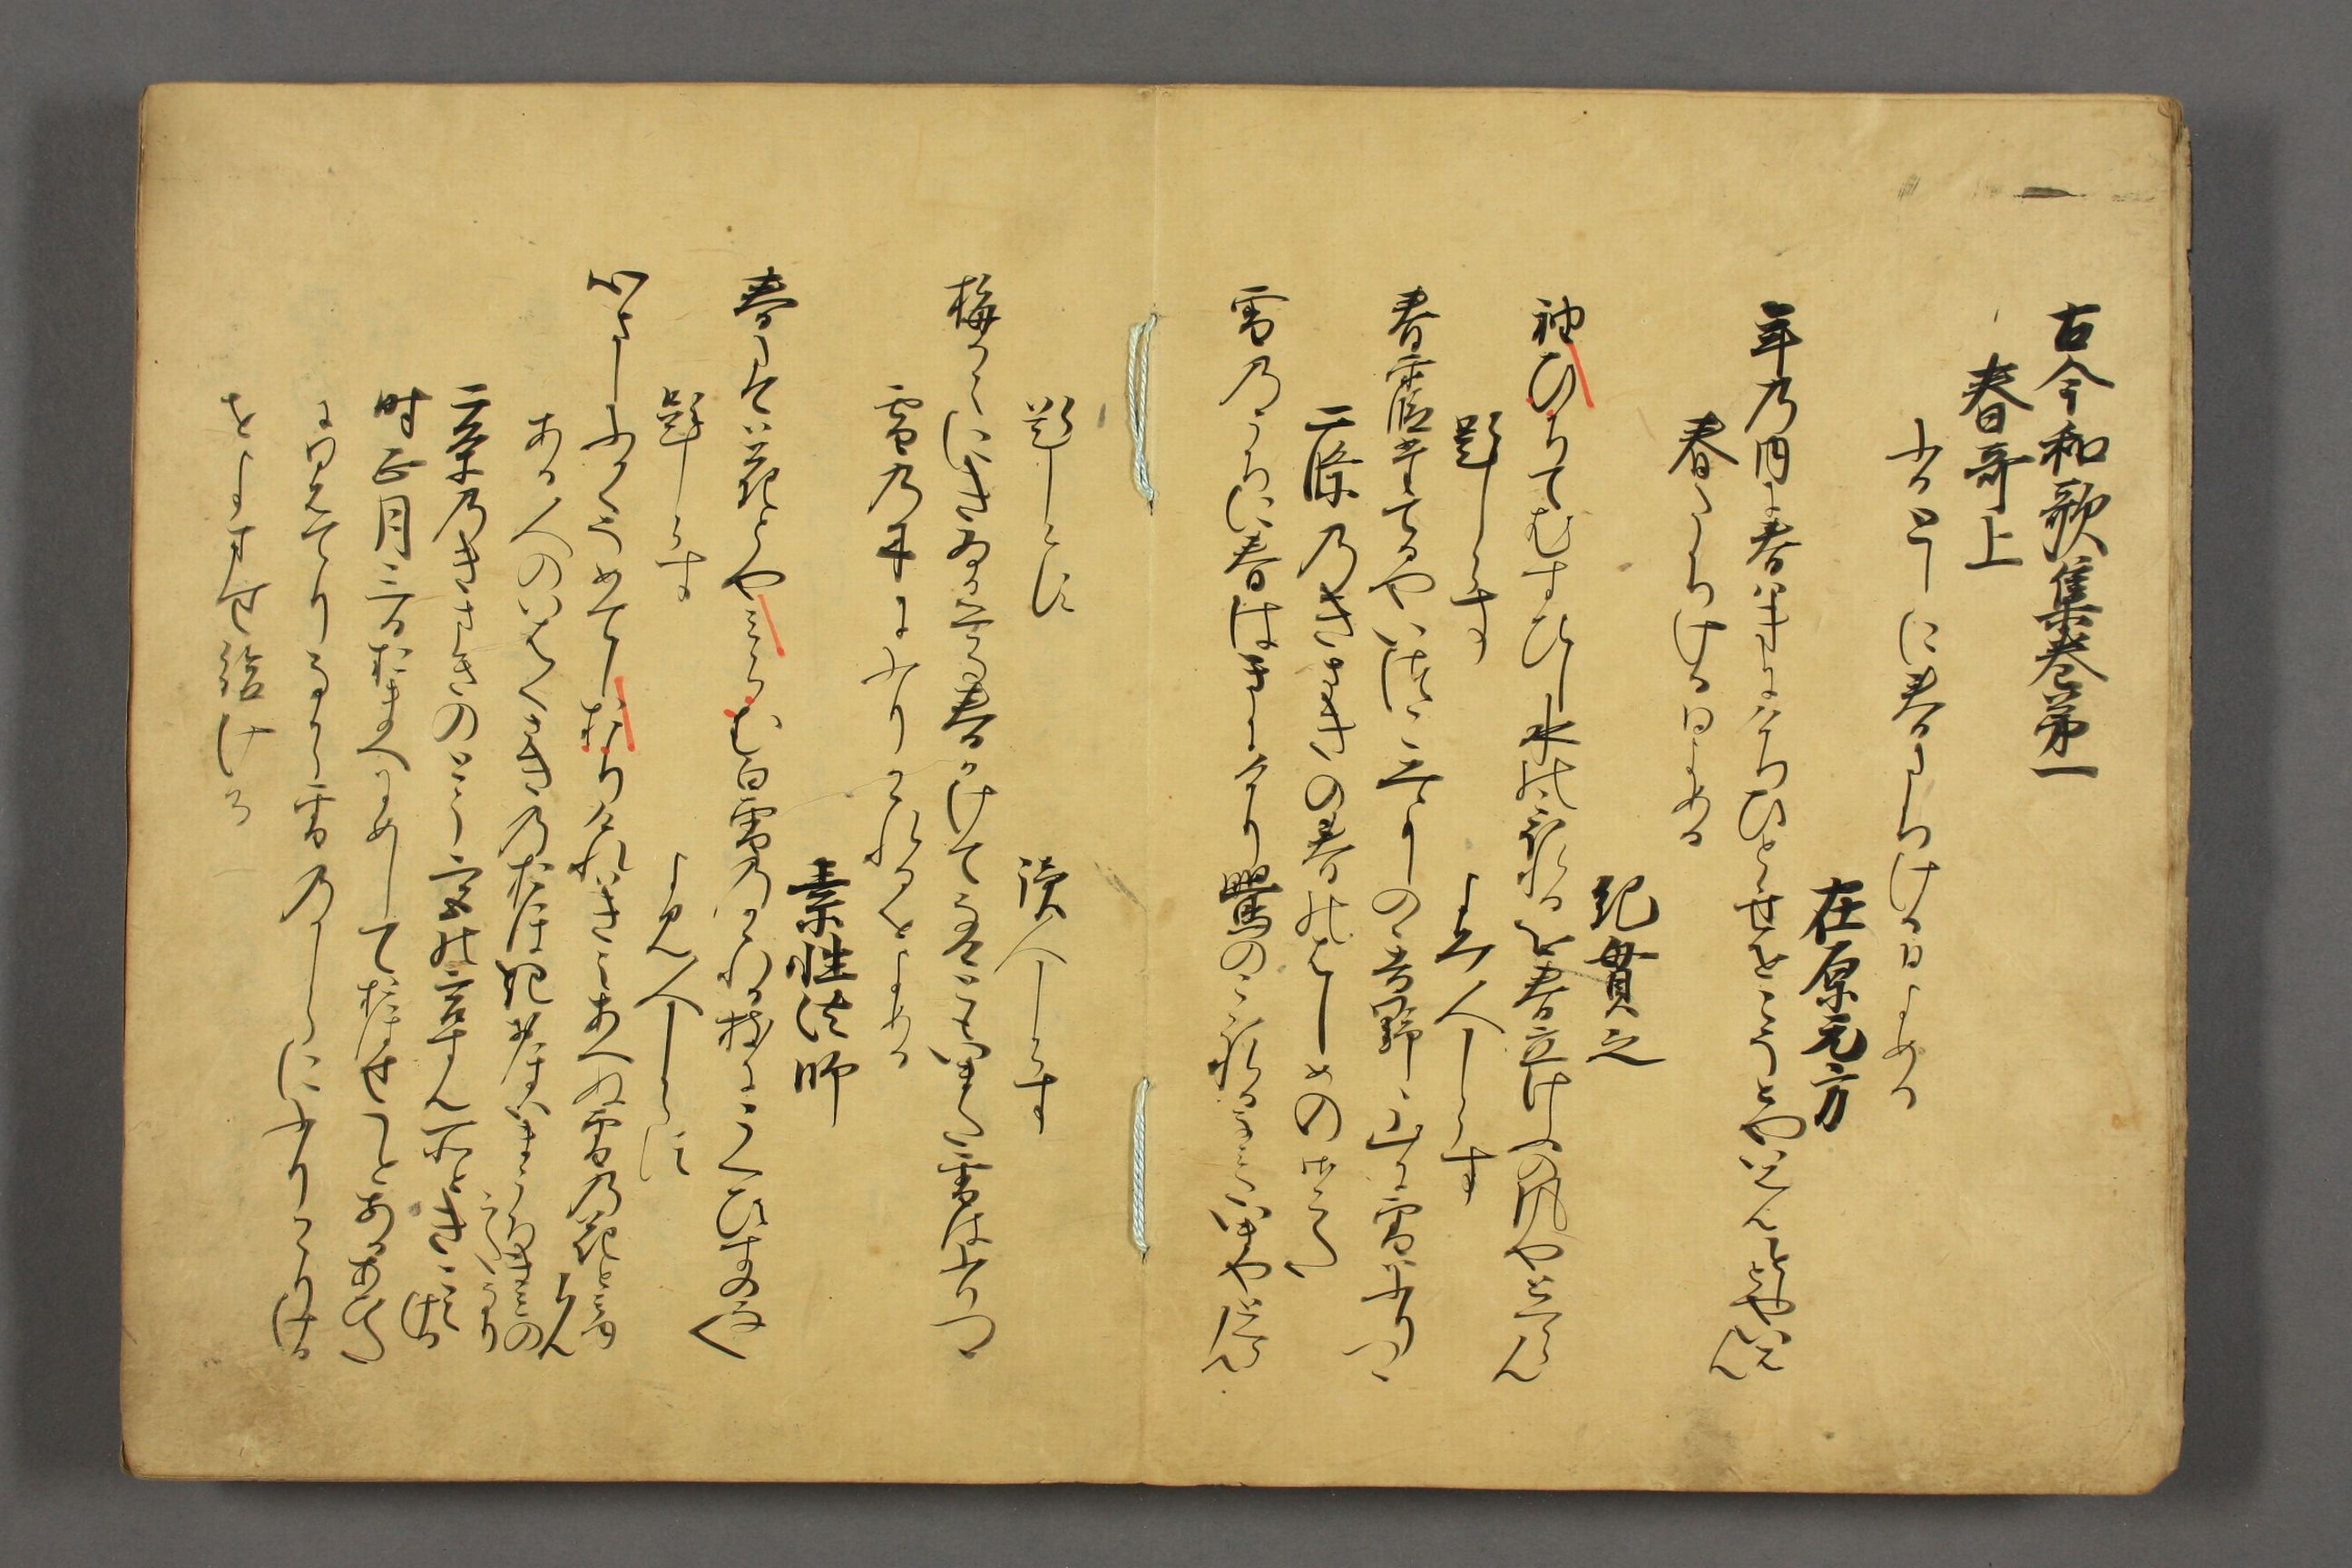 古今和歌集巻第一
春哥上
ふるとしに春たちける日よめる
在原元方
年乃内に春はきにけりひとゝせをこそとやいはんことしとやいはん
春たちける日よめる
紀貫之
袖ひちてむすひし水のこほれるを春立けふの風やとくらん
題しらす
よみ人しらす
春霞たてるやいつこみよしのゝ吉野ゝ山に雪はふりつゝ
二條乃きさきの春のはしめの御うた
雪乃うちに春はきにけり鶯のこほれるなみたいまやとくらん
題しらす
讀人しらす
梅かえにきゐる鶯春かけてなけともいまた雪はふりつゝ
雪乃木にふりかゝれるをよめる
素性法師
春たては花とやみらむ白雪乃かゝれる枝にうくひすのなく
題しらす
よみ人しらす
心さしふかくそめてしおりけれはきえあへぬ雪乃花とみゆらん
ある人のいはくさきの乃おほきおほいまうちきみのうたなり
二条乃きさきのとう宮の御息所ときこえける
時正月三日おまへにめしておほせことあるあひた
に日はてりなから雪乃かしらにふりかゝりける
をよませ給ける